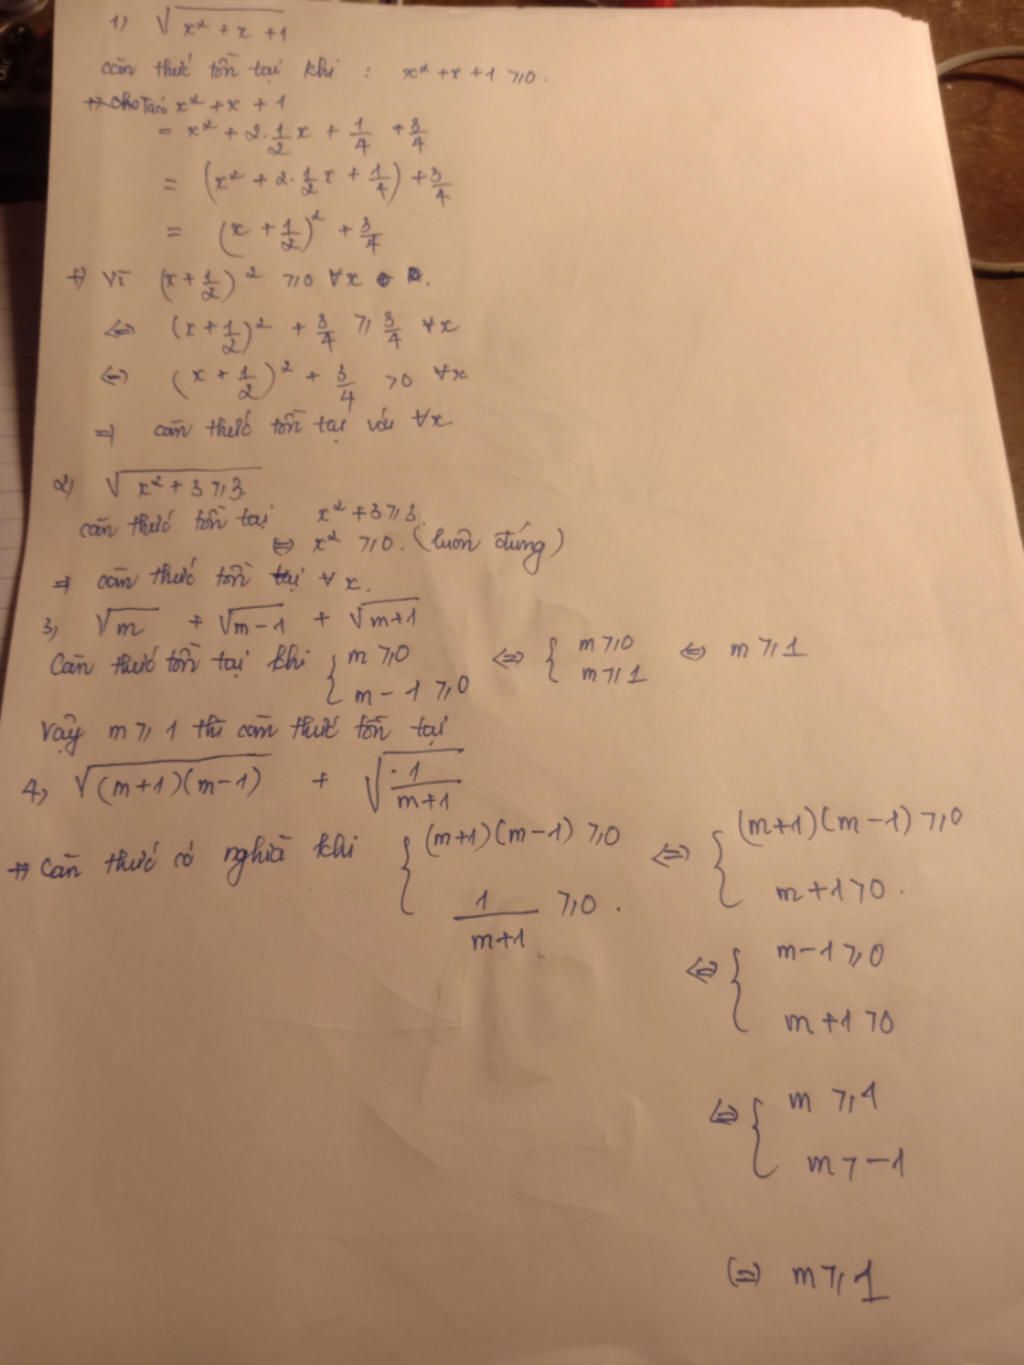 1) √(x² + x + 1)
căn thức tồn tại khi : x² + x + 1 ⩾ 0.
Ta có x² + x + 1
= x² + 2·1/2x + 1/4 + 3/4
= (x² + 2·1/2x + 1/4) + 3/4
= (x + 1/2)² + 3/4
+) Vì (x + 1/2)² ⩾ 0 ∀x
⇔ (x + 1/2)² + 3/4 ⩾ 3/4 ∀x
⇔ (x + 1/2)² + 3/4 > 0 ∀x
⇒ căn thức tồn tại với ∀x
2) √(x² + 3 ⩾ 3)
căn thức tồn tại x² + 3 ⩾ 3
⇔ x² ⩾ 0. (luôn đúng)
⇒ căn thức tồn tại ∀x.
3, √m + √(m-1) + √(m+1)
Căn thức tồn tại khi { m ⩾ 0 ; m - 1 ⩾ 0 ⇔ { m ⩾ 0 ; m ⩾ 1 ⇔ m ⩾ 1
Vậy m ⩾ 1 thì căn thức tồn tại
4, √((m+1)(m-1)) + √(1/(m+1))
+) Căn thức có nghĩa khi { (m+1)(m-1) ⩾ 0 ; 1/(m+1) ⩾ 0. ⇔ { (m+1)(m-1) ⩾ 0 ; m+1 > 0.
⇔ { m-1 ⩾ 0 ; m+1 > 0
⇔ { m ⩾ 1 ; m > -1
⇔ m ⩾ 1